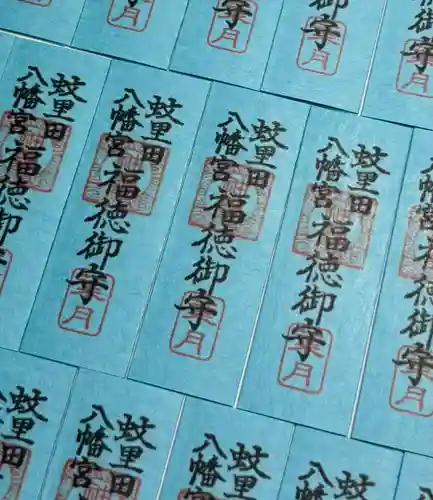 守
御守
御守
御守
蚊里田
八幡宮福徳御
蚊里田
八幡宮福徳御守
月
蚊里田
八幡宮福徳御守
月
蚊里田
八幡宮福徳御守
月
八幡宮福徳御守
月
蚊里田
蚊里田
八幡宮
蚊里田
八幡宮
蚊里
八幡
蚊